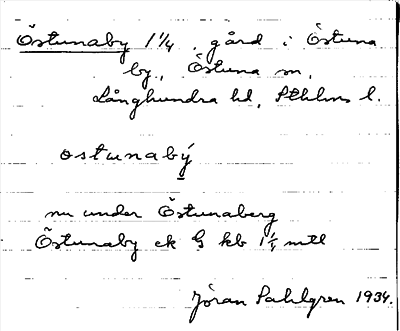 Östunaby 1 1/4, gård i Östuna
by, Östuna sn,
Långhundra hd, Sthlms l.
ostunabý
nu under Östunaberg
Östunaby ek G kb 1 1/4 mtl
Jöran Sahlgren 1934.